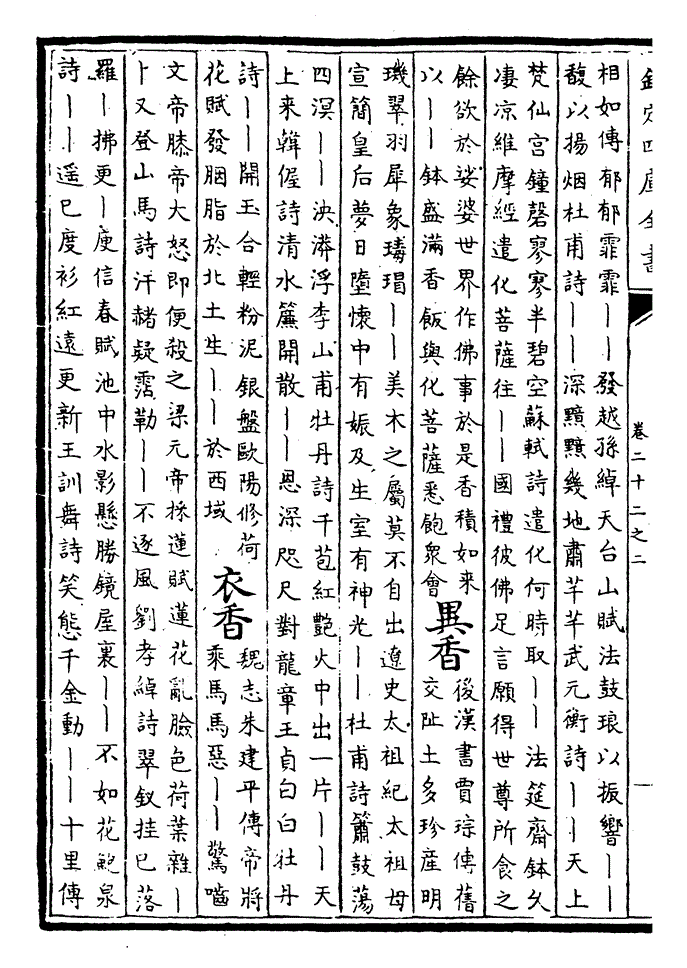 欽定四庫全書
卷二十二之二
相如傳郁郁霏霏丨丨發越孫綽天台山賦法鼓琅以振響丨丨
馥以揚烟杜甫詩丨丨深黯黯幾地肅芊芊武元衡詩丨丨天上
梵仙宮鐘磬寥寥半碧空蘇軾詩遣化何時取丨丨法筵齋鉢久
凄凉維摩經遣化菩薩往丨丨國禮彼佛足言願得世尊所食之
餘欲於娑婆世界作佛事於是香積如來
以丨丨鉢盛滿香飯與化菩薩悉飽衆會
異香
後漢書賈琮傳舊
交阯土多珍産明
璣翠羽犀象瑇瑁丨丨美木之屬莫不自出遼史太祖紀太祖母
宣簡皇后夢日墮懷中有娠及生室有神光丨丨杜甫詩簫鼓蕩
四溟丨丨泱漭浮李山甫牡丹詩千苞紅艷火中出一片丨丨天
上来韓偓詩清水簾開散丨丨恩深咫尺對龍章王貞白白牡丹
詩丨丨開玉合輕粉泥銀盤歐陽修荷
花賦發胭脂於北土生丨丨於西域
衣香
魏志朱建平傳帝將
乘馬馬惡丨丨驚嚙
文帝膝帝大怒即便殺之梁元帝採蓮賦蓮花亂臉色荷葉雜丨
丨又登山馬詩汗赭疑霑勒丨丨不逐風劉孝綽詩翠釵挂已落
羅丨拂更丨庾信春賦池中水影懸勝鏡屋裏丨丨不如花鮑泉
詩丨丨遥已度衫紅遠更新王訓舞詩笑態千金動丨丨十里傳